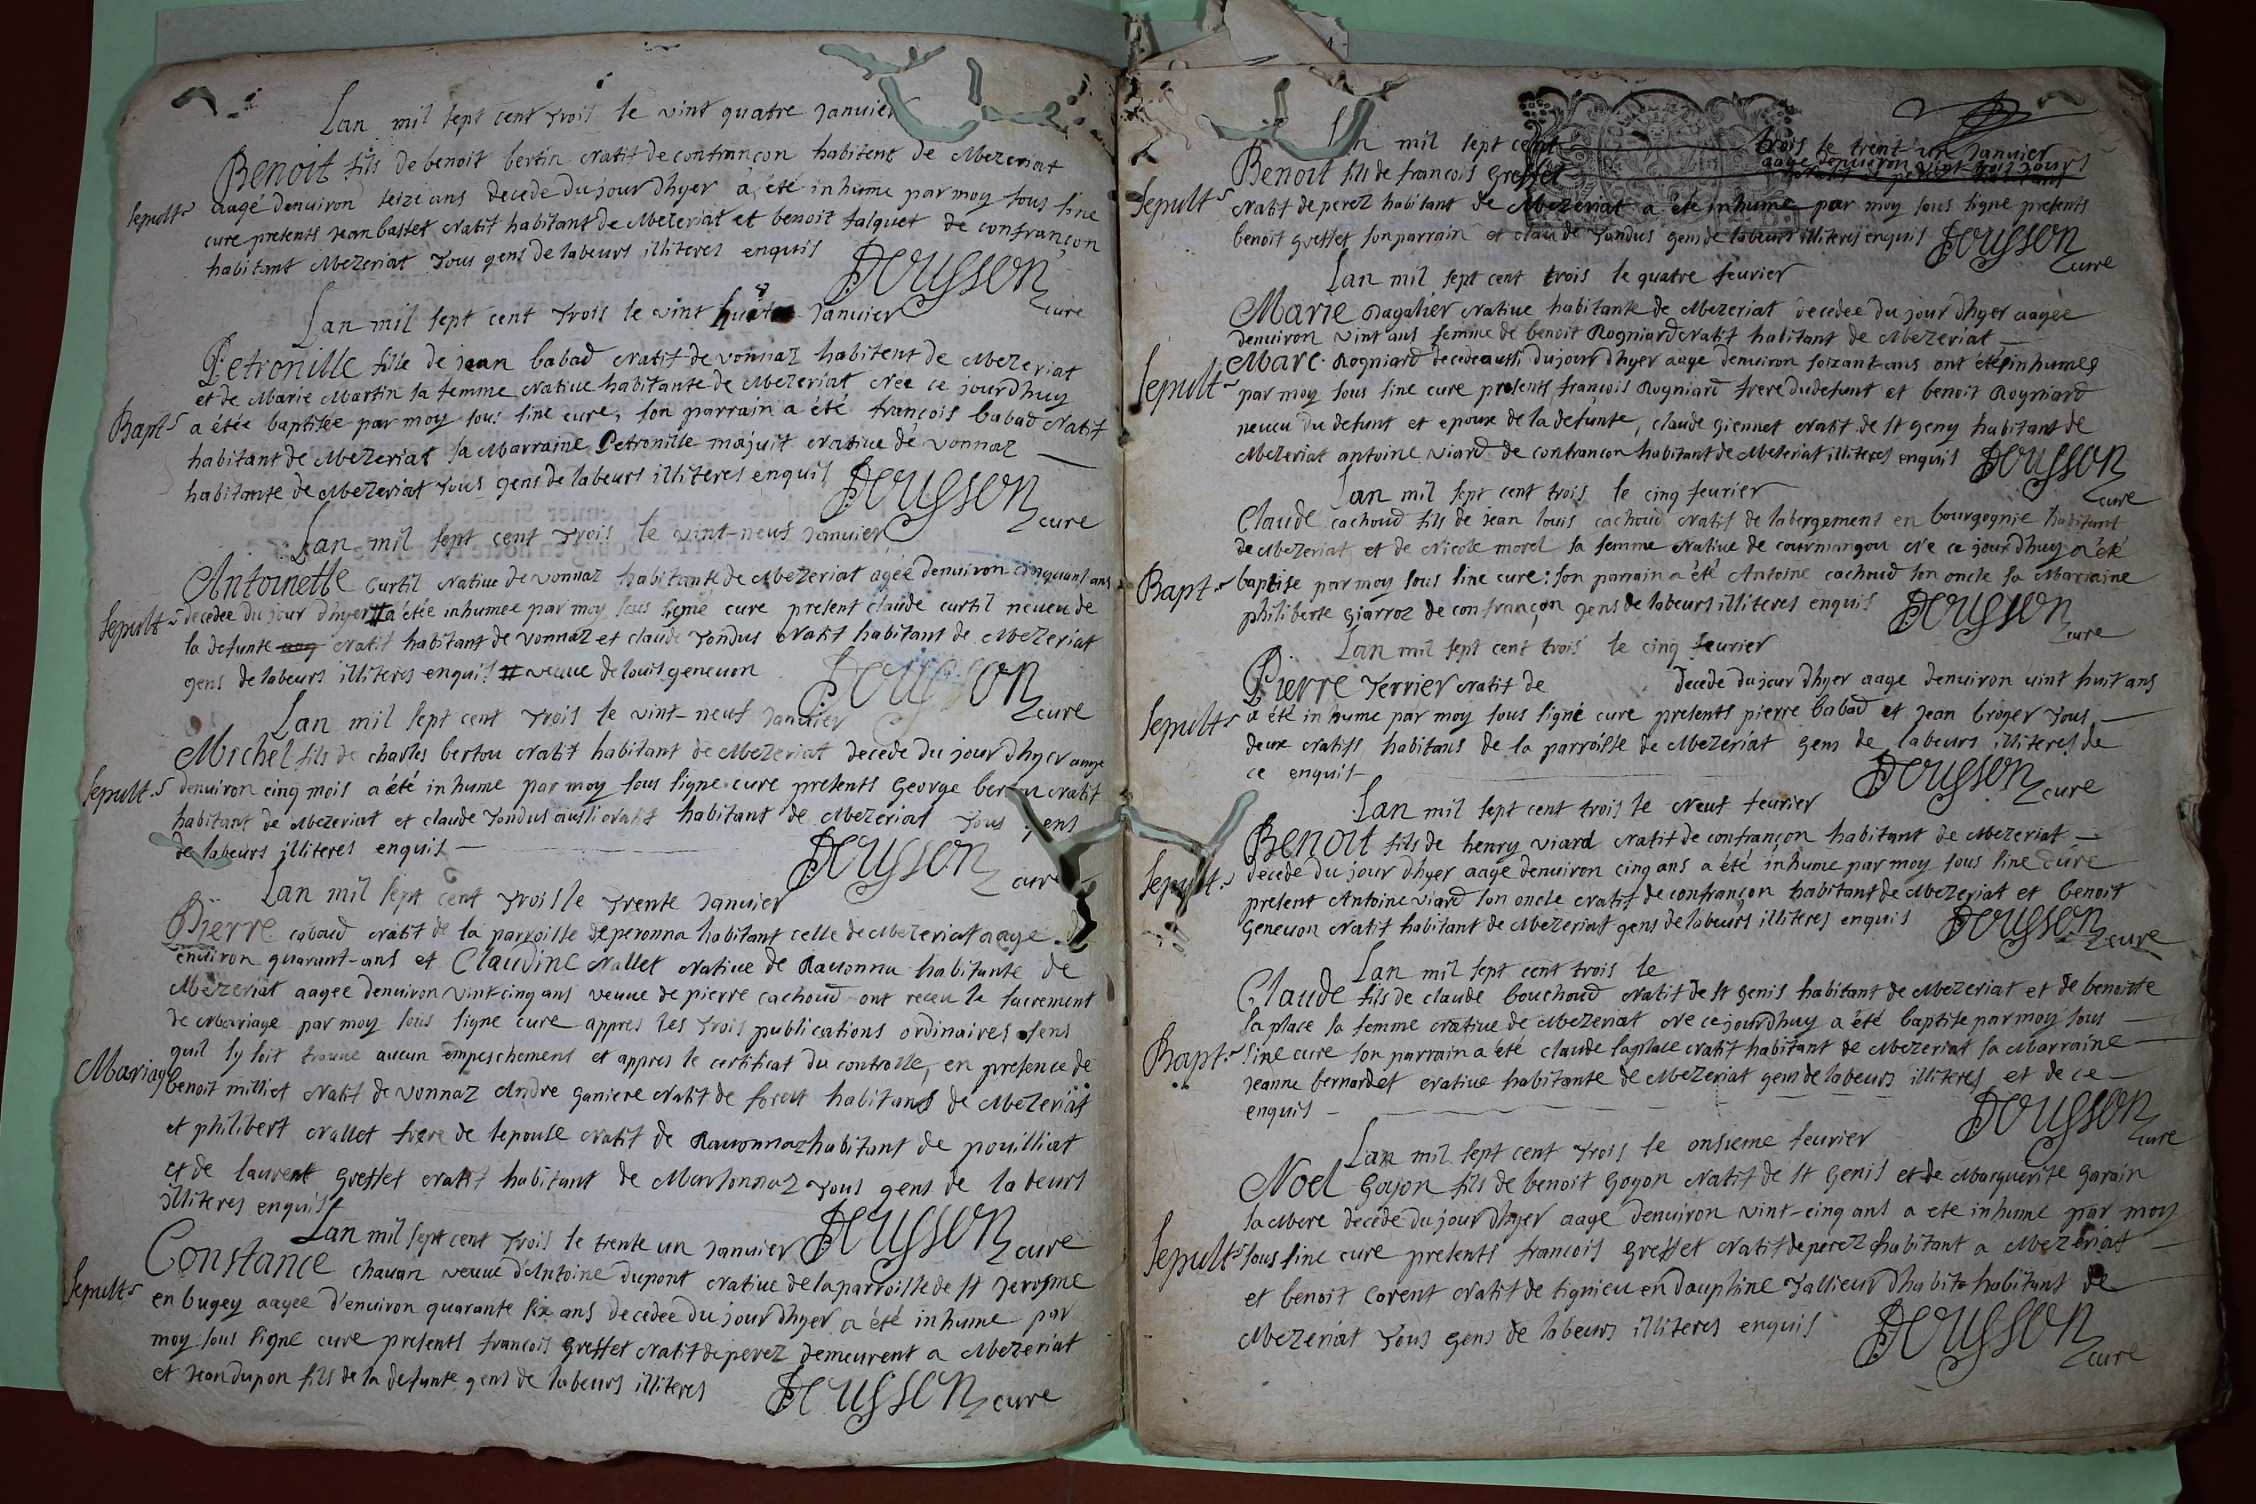 Lan mil sept cent trois le vint quatre Janvier
Benoit fils de benoit bertin natif de confrançon habitent de Mezeriat
Sepult.s aagé denuiron seize ans decede du jour dhyer a été inhumé par moy sous sine
cure presents Jean bastet natif habitant de Mezeriat et benoit falquet de confrançon
habitant Mezeriat tous gens de labeurs illiteres enquis
Dousson cure
Lan mil sept cent trois le vint huit Janvier
Petronille fille de jean babad natif de vonnaz habitent de Mezeriat
et de Marie Martin sa femme native habitante de Mezeriat née ce jourdhuy
Bapt.s a étée baptisée par moy sous sine cure, son parrain a été françois babad natif
habitant de Mezeriat sa Marraine Petronille majuit native de vonnaz
habitante de Mezeriat tous gens de labeurs illiteres enquis
Dousson cure
Lan mil sept cent trois le vint-neuf Janvier
Antoinette curtil native de vonnaz habitante de Mezeriat agée denuiron cinquant ans
Sepult.s decedee du jour dhyer # a étée inhumee par moy sous signé cure present claude curtil neueu de
la defunte aag natif habitant de vonnaz et claude tondus natif habitant de Mezeriat
gens de labeurs illiteres enquis # veuue de louis geneuon
Dousson cure
Lan mil sept cent trois le vint-neuf Janvier
Michel fils de charles bertou natif habitant de Mezeriat decede du jour dhyer aage
Sepult.s denuiron cinq mois a été inhume par moy sous signe cure presents George bertou natif
habitant de Mezeriat et claude tondus aussi natif habitant de Mezeriat tous gens
de labeurs illiteres enquis
Dousson cure
Lan mil sept cent trois le trente Janvier
Pierre cabaud natif de la parroisse de peronna habitant celle de Mezeriat aage d
enuiron quarant-ans et Claudine Nallet native de Rauonna habitante de
Mezeriat aagee denuiron vint-cinq ans veuue de pierre cachoud ont receu le sacrement
de Mariage par moy sous signe cure appres les trois publications ordinaires sens
quil sy soit trouue aucun empeschement et appres le certificat du controlle, en presence de
Mariage benoit milliet natif de vonnaz Andre ganiere natif de forest habitans de Mezeriat
et philibert Nallet frere de lepouse natif de Rauonnaz habitant de pouilliat
et de laurent Greffet natif habitant de Marsonnaz tous gens de labeurs
illiteres enquis
Dousson cure
Lan mil sept cent trois le trente un Janvier
Constance chavan veuue d'Antoine dupont native de la parroisse de st Jerosme
Sepult.s en bugey aagee d'enuiron quarante six ans decedee du jour dhyer a été inhume par
moy sous signe cure presents francois Greffet natif de perez demeurent a Mezeriat
et Jean dupon fils de la defunte gens de labeurs illiteres
Dousson cure
Lan mil sept cent trois le trent un Janvier
Benoit fils de francois Greffet aage denuiron vint-trois jours
Sepult.s natif de perez habitant de Mezeriat a été inhume par moy sous signe presents
benoit Greffet son parrain et claude tondus gens de labeurs illiteres enquis
Dousson cure
Lan mil sept cent trois le quatre feurier
Marie Ragalier native habitante de Mezeriat decedee du jour dhyer aagee
denuiron vint ans femme de benoit Rogniard natif habitant de Mezeriat
Sepult.s Marc Rogniard decede aussi du jour dhyer aage denuiron soixant-ans ont étés inhumes
par moy sous sine cure presents françois Rogniard frere du defunt et benoit Rogniard
neueu du defunt et epoux de la defunte, claude giennet natif de st geny habitant de
Mezeriat antoine viard de confrancon habitant de Mezeriat illiteres enquis
Dousson cure
Lan mil sept cent trois le cinq feurier
Claude cachoud fils de jean louis cachoud natif de labergement en bourgognie habitant
de Mezeriat et de Nicole morel sa femme native de courmangou ne ce jourdhuy a été
Bapt.s baptise par moy sous sine cure: son parrain a été Antoine cachoud son oncle sa Marraine
philiberte giarroz de confrançon gens de labeurs illiteres enquis
Dousson cure
Lan mil sept cent trois le cinq feurier
Pierre terrier natif de decede du jour dhyer aage denuiron vint huit ans
Sepult.s a été inhume par moy sous signé cure presents pierre babad et Jean broyer tous
deux natifs habitans de la parroisse de Mezeriat gens de labeurs illiteres de
ce enquis
Dousson cure
Lan mil sept cent trois le Neuf feurier
Benoit fils de henry viard natif de confrançon habitant de Mezeriat
Sepult.s decede du jour dhyer aage denuiron cinq ans a été inhume par moy sous sine cure
present Antoine viard son oncle natif de confrançon habitant de Mezeriat et benoit
Geneuon natif habitant de Mezeriat gens de labeurs illiteres enquis
Dousson cure
Lan mil sept cent trois le
Claude fils de claude bouchoud natif de st Genis habitant de Mezeriat et de benoitte
laplace sa femme native de Mezeriat ne ce jourdhuy a été baptise par moy sous
Bapt.s sine cure son parrain a été claude laplace natif habitant de Mezeriat sa Marraine
jeanne bernardet native habitante de Mezeriat gens de labeurs illiteres et de ce
enquis
Dousson cure
Lan mil sept cent trois le onsieme feurier
Noel Goyon fils de benoit Goyon natif de st Genis et de Marguerite Garain
sa Mere décéde du jour dhyer aage denuiron vint-cinq ans a ete inhume par moy
Sepult.s sous sine cure presents francois Greffet natif de perez habitant a Mezeriat
et benoit Corent natif de tignieu en dauphine tallieur dhabits habitant de
Mezeriat tous gens de labeurs illiteres enquis
Dousson cure